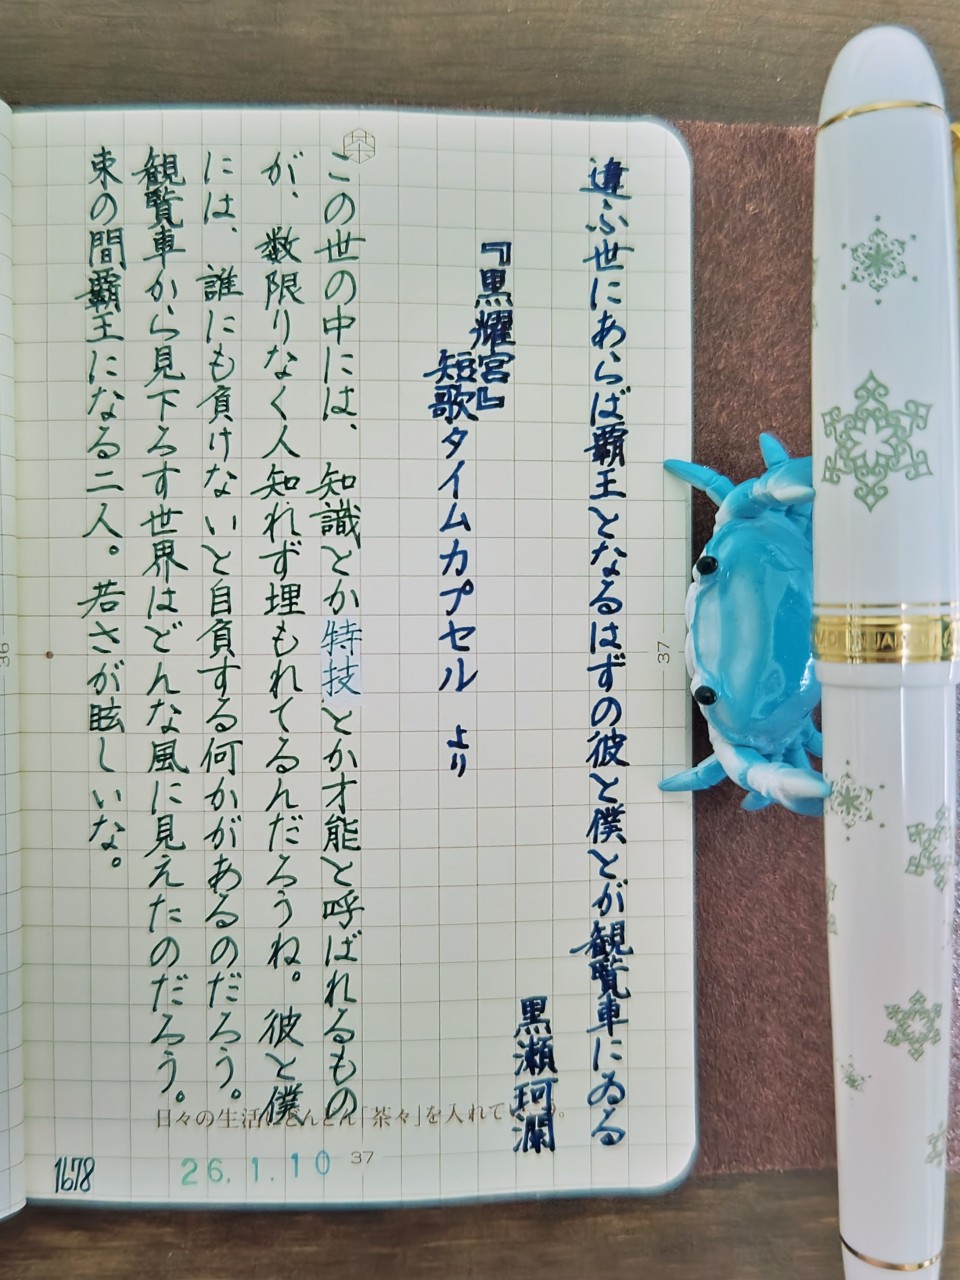 違ふ世にあらば覇王となるはずの彼と僕とが観覧車にゐる
黒瀬珂瀾
『黒耀宮』
短歌タイムカプセル より
この世の中には、知識とか特技とか才能と呼ばれるもの
が、数限りなく人知れず埋もれてるんだろうね。彼と僕
には、誰にも負けないと自負する何かがあるのだろう。
観覧車から見下ろす世界はどんな風に見えたのだろう。
束の間覇王になる二人。若さが眩しいな。
日々の生活にどんどん「茶々」を入れて
26.1.10
37
1678
37
36